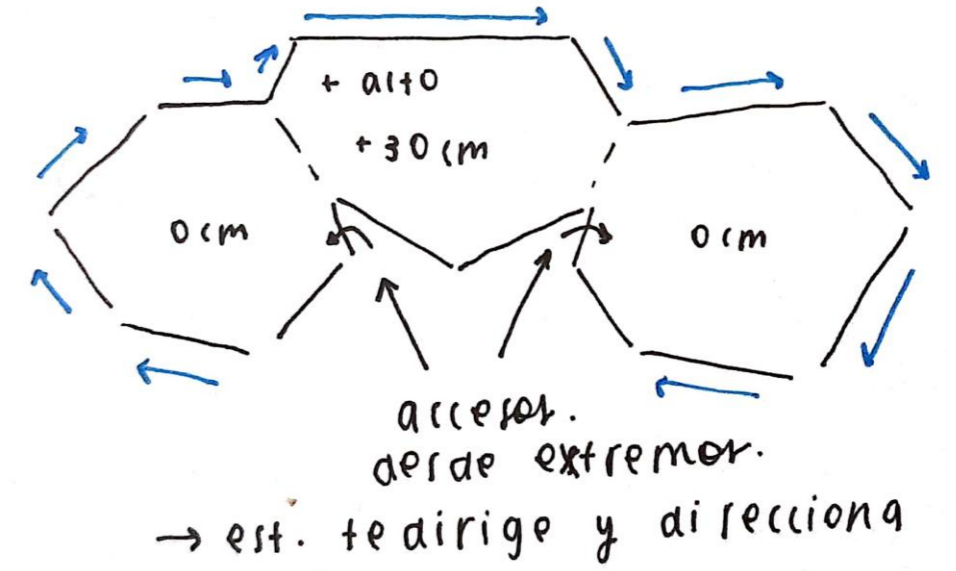 + alto
+30 cm
0 cm
0 cm
accesos.
desde extremos.
→ est. te dirige y direcciona